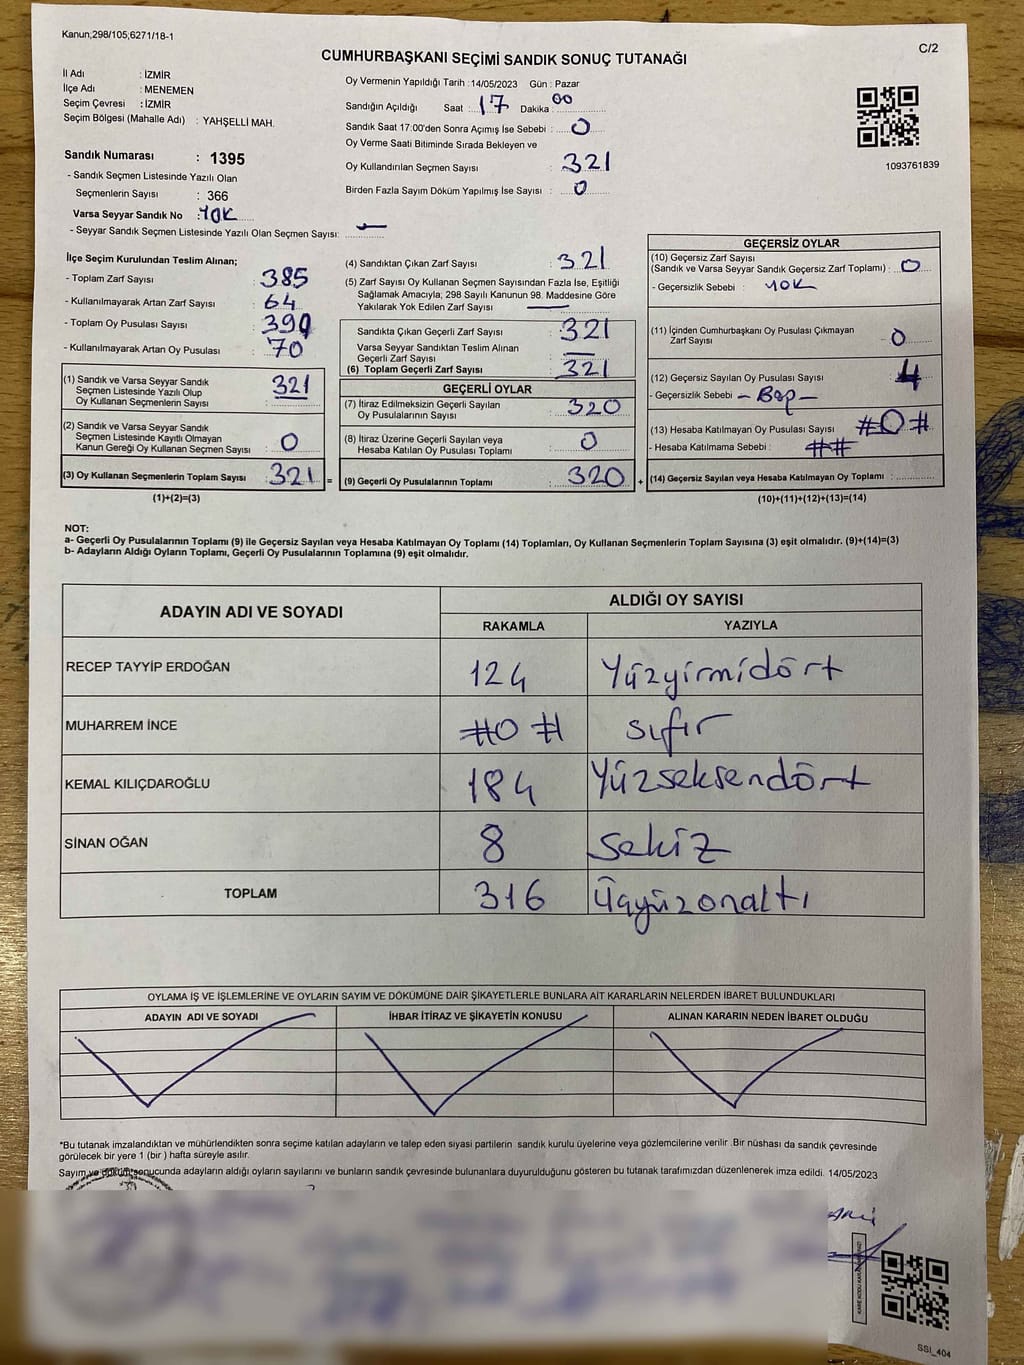 Kanun;298/105;6271/18-1
C/2
CUMHURBAŞKANI SEÇİMİ SANDIK SONUÇ TUTANAĞI
İl Adı : İZMİR
İlçe Adı : MENEMEN
Seçim Çevresi : İZMİR
Seçim Bölgesi (Mahalle Adı) : YAHŞELLİ MAH.
Sandık Numarası : 1395
- Sandık Seçmen Listesinde Yazılı Olan
Seçmenlerin Sayısı : 366
Varsa Seyyar Sandık No : YOK
- Seyyar Sandık Seçmen Listesinde Yazılı Olan Seçmen Sayısı: —
Oy Vermenin Yapıldığı Tarih : 14/05/2023 Gün : Pazar
Sandığın Açıldığı Saat : 17 Dakika : 00
Sandık Saat 17:00'den Sonra Açımış İse Sebebi : 0
Oy Verme Saati Bitiminde Sırada Bekleyen ve
Oy Kullandırılan Seçmen Sayısı : 321
Birden Fazla Sayım Döküm Yapılmış İse Sayısı : 0
1093761839
İlçe Seçim Kurulundan Teslim Alınan;
- Toplam Zarf Sayısı : 385
- Kullanılmayarak Artan Zarf Sayısı : 64
- Toplam Oy Pusulası Sayısı : 390
- Kullanılmayarak Artan Oy Pusulası : 70
(1) Sandık ve Varsa Seyyar Sandık
Seçmen Listesinde Yazılı Olup
Oy Kullanan Seçmenlerin Sayısı : 321
(2) Sandık ve Varsa Seyyar Sandık
Seçmen Listesinde Kayıtlı Olmayan
Kanun Gereği Oy Kullanan Seçmen Sayısı : 0
(3) Oy Kullanan Seçmenlerin Toplam Sayısı : 321 =
(1)+(2)=(3)
(4) Sandıktan Çıkan Zarf Sayısı : 321
(5) Zarf Sayısı Oy Kullanan Seçmen Sayısından Fazla İse, Eşitliği
Sağlamak Amacıyla; 298 Sayılı Kanunun 98. Maddesine Göre
Yakılarak Yok Edilen Zarf Sayısı : —
Sandıkta Çıkan Geçerli Zarf Sayısı : 321
Varsa Seyyar Sandıktan Teslim Alınan
Geçerli Zarf Sayısı : —
(6) Toplam Geçerli Zarf Sayısı : 321
GEÇERLİ OYLAR
(7) İtiraz Edilmeksizin Geçerli Sayılan
Oy Pusulalarının Sayısı : 320
(8) İtiraz Üzerine Geçerli Sayılan veya
Hesaba Katılan Oy Pusulası Toplamı : 0
(9) Geçerli Oy Pusulalarının Toplamı : 320 +
GEÇERSİZ OYLAR
(10) Geçersiz Zarf Sayısı
(Sandık ve Varsa Seyyar Sandık Geçersiz Zarf Toplamı) : 0
- Geçersizlik Sebebi : YOK
(11) İçinden Cumhurbaşkanı Oy Pusulası Çıkmayan
Zarf Sayısı : 0
(12) Geçersiz Sayılan Oy Pusulası Sayısı : 4
- Geçersizlik Sebebi
(13) Hesaba Katılmayan Oy Pusulası Sayısı : #0#
- Hesaba Katılmama Sebebi : ##
(14) Geçersiz Sayılan veya Hesaba Katılmayan Oy Toplamı :
(10)+(11)+(12)+(13)=(14)
NOT:
a- Geçerli Oy Pusulalarının Toplamı (9) ile Geçersiz Sayılan veya Hesaba Katılmayan Oy Toplamı (14) Toplamları, Oy Kullanan Seçmenlerin Toplam Sayısına (3) eşit olmalıdır. (9)+(14)=(3)
b- Adayların Aldığı Oyların Toplamı, Geçerli Oy Pusulalarının Toplamına (9) eşit olmalıdır.
ADAYIN ADI VE SOYADI
ALDIĞI OY SAYISI
RAKAMLA YAZIYLA
RECEP TAYYİP ERDOĞAN 124 Yüzyirmidört
MUHARREM İNCE #0# sıfır
KEMAL KILIÇDAROĞLU 184 Yüzseksendört
SİNAN OĞAN 8 Sekiz
TOPLAM 316 Üçyüzonaltı
OYLAMA İŞ VE İŞLEMLERİNE VE OYLARIN SAYIM VE DÖKÜMÜNE DAİR ŞİKAYETLERLE BUNLARA AİT KARARLARIN NELERDEN İBARET BULUNDUKLARI
ADAYIN ADI VE SOYADI İHBAR İTİRAZ VE ŞİKAYETİN KONUSU ALINAN KARARIN NEDEN İBARET OLDUĞU
*Bu tutanak imzalandıktan ve mühürlendikten sonra seçime katılan adayların ve talep eden siyasi partilerin sandık kurulu üyelerine veya gözlemcilerine verilir .Bir nüshası da sandık çevresinde
görülecek bir yere 1 (bir ) hafta süreyle asılır.
Sayım ve döküm sonucunda adayların aldığı oyların sayılarını ve bunların sandık çevresinde bulunanlara duyurulduğunu gösteren bu tutanak tarafımızdan düzenlenerek imza edildi. 14/05/2023
SSI_404